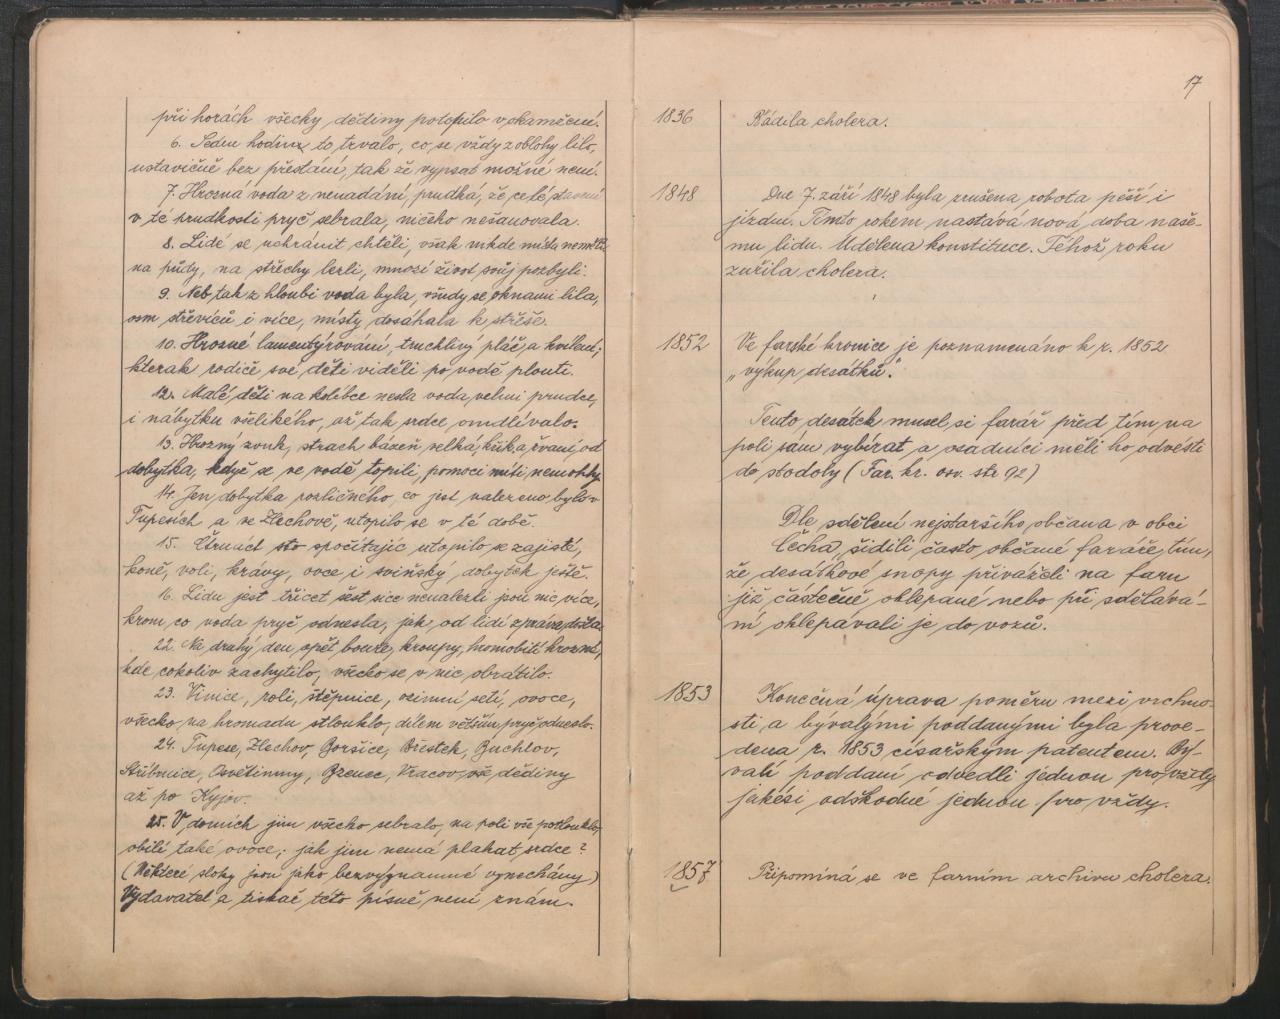 při horách všecky dědiny potopilo v okamžení.
6. Sedm hodin to trvalo, co se vždy z oblohy lilo,
ustavičně bez přestání, tak že vypsat možné není.
7. Hrozná voda z nenadání, prudká, že celé stavení
v té prudkosti pryč sebrala, ničeho nešanovala.
8. Lidé se uchránit chtěli, však nikde místa neměli,
na půdy, na střechy lezli, mnozí život svůj pozbyli.
9. Neb tak z hloubi voda byla, všudy se oknami lila,
osm střevíců i více, místy dosáhala k střeše.
10. Hrozné lamentýrování, truchlivý pláč a kvílení;
kterak rodiče své děti viděli po vodě plouti.
12. Malé děti na kolíbce nesla voda velmi prudce,
i nábytku všelikého, až tak srdce omdlévalo.
13. Hrozný zvuk, strach bázeň velká, křik a řvaní od
dobytka, když se ve vodě topili, pomoci míti nemohly.
14. Jen dobytka rozličného, co jest nalezeno bylo v
Tupesích a ve Zlechově, utopilo se v té době.
15. Čtrnáct sto spočítajíc utopilo se zajisté,
koně, voli, krávy, ovce i sviňský dobytek ještě.
16. Lidu jest třicet šest sice nenalezli jsou nic více,
krom co voda pryč odnesla, jak od lidí zpráva došla.
22. Na druhý den opět bouře, kroupy, hromobití hrozné,
kde cokoliv zachytilo, všecko se v nic obrátilo.
23. Vinice, rolí, štěpnice, ozimní setí, ovoce,
všecko na hromadu stlouklo, dílem větším pryč odneslo.
24. Tupese, Zlechov, Boršice, Břestek, Buchlov,
Stříbrnice, Osvětimny, Bzence, Vracov, vše dědiny
až po Kyjov.
25. V domích jim všecko sebralo, na poli vše potlouklo,
obilí také ovoce; jak jim nemá plakat srdce?
(Některé sloky jsou jako bezvýznamné vynechány)
Vydavatel a tiskač této písně není znám.
17
1836 Řádila cholera.
1848 Dne 7. září 1848 byla zrušena robota pěší i
jízdní. Tímto rokem nastává nová doba naše-
mu lidu. Udělena konstituce. Téhož roku
zuřila cholera.
1852 Ve farské kronice je poznamenáno k r. 1852
„výkup desátků".
Tento desátek musel si farář před tím na
poli sám vybírat a osadníci měli ho odvésti
do stodoly (Far. kr. osv. str 92)
Dle sdělení nejstaršího občana v obci
Čecha, šidili často občané faráře tím,
že desátkové snopy přiváželi na faru
již částečně oklepané nebo při sdělává-
ní oklepávali je do vozů.
1853 Konečná úprava poměru mezi vrchno-
stí a bývalými poddanými byla prove-
dena r. 1853 císařským patentem. Bý-
valí poddaní odvedli jednou pro vždy
jakési odškodné jednou pro vždy.
1857 Připomíná se ve farním archivu cholera.